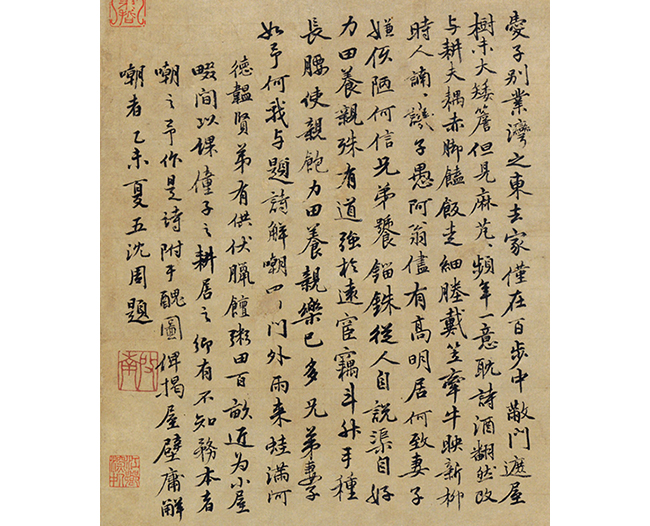 子別業灣之東去家僅在百步中敞門遮屋
樹未大矮簷但見麻芃頻年一意耽詩酒翻然改
与耕夫耦赤脚饁飯走細塍戴笠牽牛映新柳
時人譏子愚阿翁儘有高明居何致妻子
嫌陋何信兄弟饕錙銖從人自說渠自好
力田養親殊有道強於遠宦竊斗升手種
長腰使親飽力田養親樂已多兄弟妻子
如予何我与題詩解嘲門外雨来蛙滿河
德韞賢弟有供伏臘饘粥田百畝近为小屋
畷間以課僮子之耕居之鄉有不知務本者
嘲之予作是詩附于醜圖俾揭屋壁庸解
嘲者乙未夏五沈周題